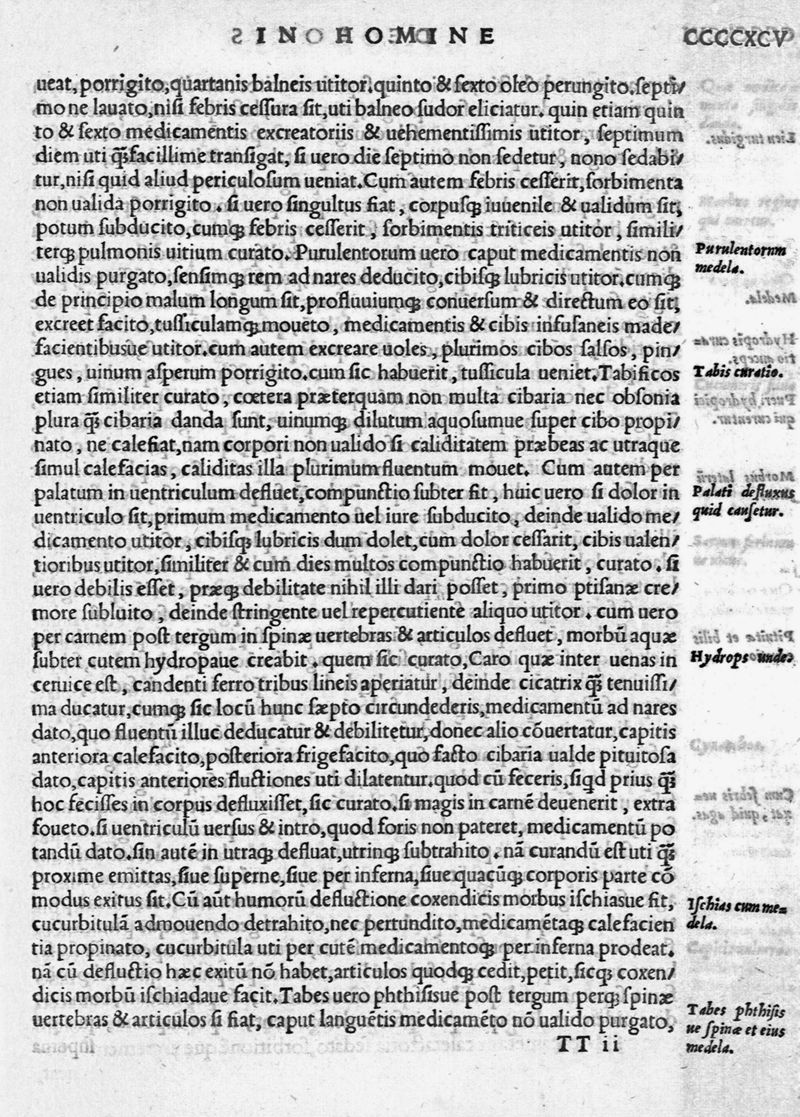 IN HOMINE
CCCCXCV
ueat, porrigito, quartanis balneis utitor. quinto & sexto oleo perungito. septi⸗
mo ne lauato, nisi febris cessura sit, uti balneo sudor eliciatur. quin etiam quin
to & sexto medicamentis excreatoriis & uehementissimis utitor, septimum
diem uti q̃ facillime transigat, si uero die septimo non sedetur, nono sedabi⸗
tur, nisi quid aliud periculosum ueniat. Cum autem febris cesserit, sorbimenta
non ualida porrigito. si uero singultus fiat, corpusq; iuuenile & ualidum sit,
potum subducito, cumq; febris cesserit, sorbimentis triticeis utitor, simili⸗
terq; pulmonis uitium curato. Purulentorum uero caput medicamentis non
ualidis purgato, sensimq; rem ad nares deducito, cibisq; lubricis utitor. cumq;
de principio malum longum sit, profluuiumq; conuersum & directum eo sit,
excreet facito, tussiculamq; moueto, medicamentis & cibis infusaneis made⸗
facientibusue utitor. cum autem excreare uoles, plurimos cibos salsos, pin⸗
gues, uinum asperum porrigito. cum sic habuerit, tussicula ueniet. Tabificos
etiam similiter curato, cœtera præterquam non multa cibaria nec obsonia
plura q̃ cibaria danda sunt, uinumq; dilutum aquosumue super cibo propi⸗
nato, ne calefiat, nam corpori non ualido si caliditatem præbeas ac utraque
simul calefacias, caliditas illa plurimum fluentum mouet. Cum autem per
palatum in uentriculum defluet, compunctio subter fit, huic uero si dolor in
uentriculo sit, primum medicamento uel iure subducito, deinde ualido me⸗
dicamento utitor, cibisq; lubricis dum dolet, cum dolor cessarit, cibis ualen⸗
tioribus utitor, similiter & cum dies multos compunctio habuerit, curato. si
uero debilis esset, præq; debilitate nihil illi dari posset, primo ptisanæ cre⸗
more subluito, deinde stringente uel repercutiente aliquo utitor. cum uero
per carnem post tergum in spinæ uertebras & articulos defluet, morbũ aquæ
subter cutem hydropaue creabit. quem sic curato, Caro quæ inter uenas in
ceruice est, candenti ferro tribus lineis aperiatur, deinde cicatrix q̃ tenuissi⸗
ma ducatur, cumq; sic locũ hunc sæpto circundederis, medicamentũ ad nares
dato, quo fluentũ illuc deducatur & debilitetur, donec alio cõuertatur, capitis
anteriora calefacito, posteriora frigefacito, quo facto cibaria ualde pituitosa
dato, capitis anteriores fluctiones uti dilatentur. quod cũ feceris, siqd prius q̃
hoc fecisses in corpus defluxisset, sic curato. si magis in carnẽ deuenerit, extra
foueto. si uentriculũ uersus & intro, quod foris non pateret, medicamentũ po
tandũ dato. sin autẽ in utraq; defluat, utrinq; subtrahito. nã curandũ est uti q̃
proxime emittas, siue superne, siue per inferna, siue quacũq; corporis parte cõ
modus exitus sit. Cũ aũt humorũ defluctione coxendicis morbus ischiasue fit,
cucurbitulã admouendo detrahito, nec pertundito, medicamẽtaq; calefacien
tia propinato, cucurbitula uti per cutẽ medicamentoq; per inferna prodeat.
nã cũ defluctio hæc exitũ nõ habet, articulos quodq; cedit, petit, sicq; coxen⸗
dicis morbũ ischiadaue facit. Tabes uero phthisisue post tergum perq; spinæ
uertebras & articulos si fiat, caput languẽtis medicamẽto nõ ualido purgato,
TT ii
Purulentorum
medela.
Tabis curatio.
Palati defluxus
quid causetur.
Hydrops unde.
Ischias cum me⸗
dela.
Tabes phthisis
ue spinæ et eius
medela.